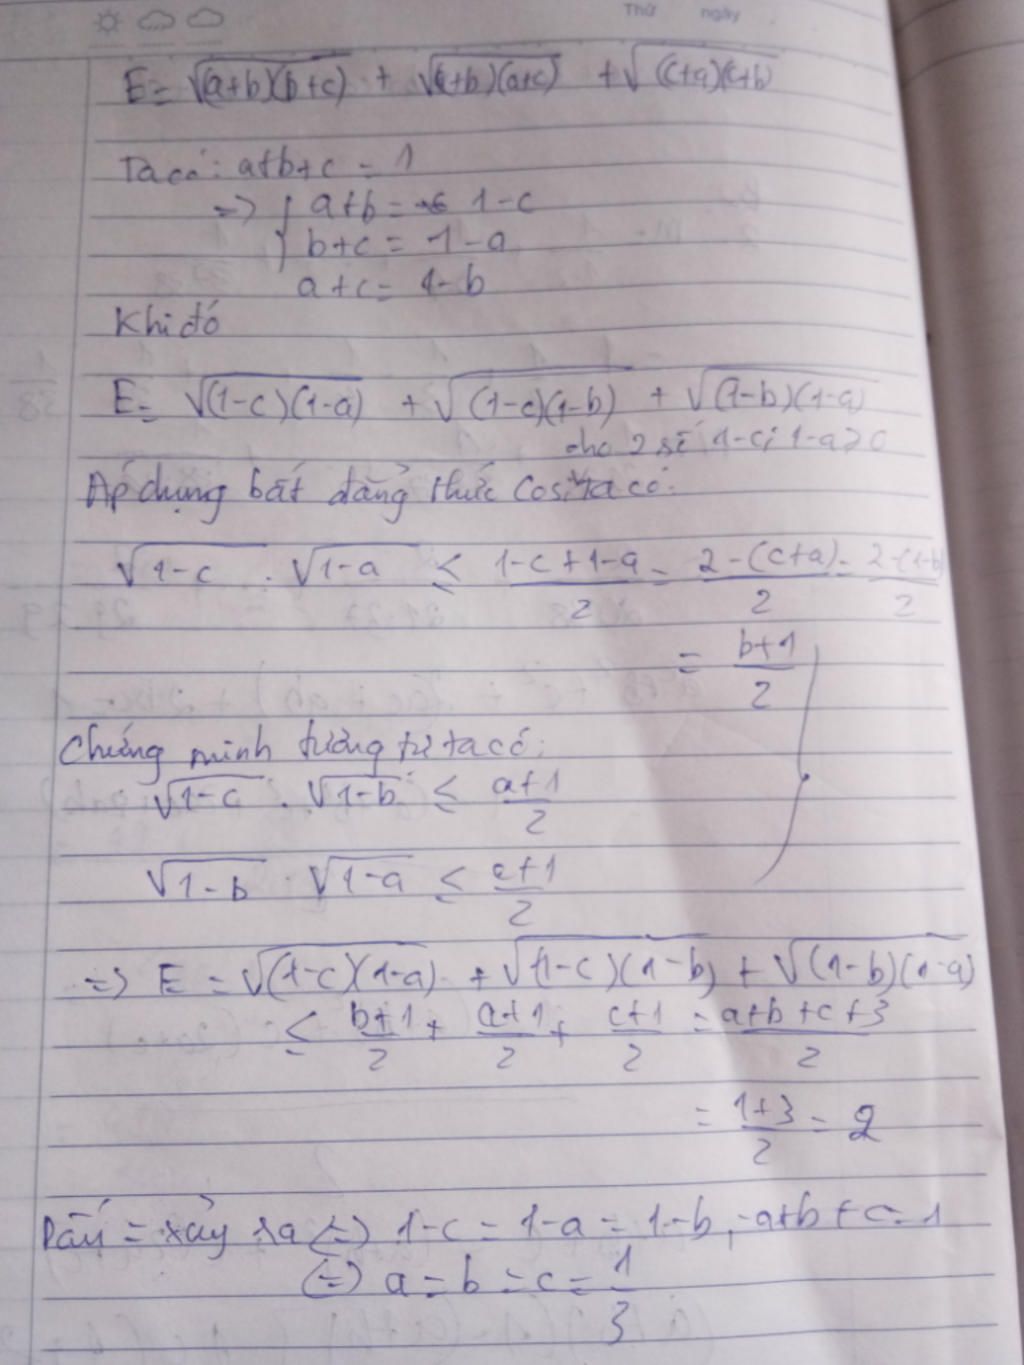 Thứ ngày
E = √(a+b)(b+c) + √(a+b)(a+c) + √(c+a)(c+b)
Ta có: a+b+c = 1
=> { a+b = 1-c
b+c = 1-a
a+c = 1-b
Khi đó
E = √(1-c)(1-a) + √(1-c)(1-b) + √(1-b)(1-a)
cho 2 số 1-c; 1-a ≥ 0
Áp dụng bất đẳng thức Cosi ta có:
√1-c . √1-a ≤ 1-c+1-a/2 = 2-(c+a)/2 = 2-(1-b)/2
= b+1/2
Chứng minh tương tự ta có:
√1-c . √1-b ≤ a+1/2
√1-b . √1-a ≤ c+1/2
=> E = √(1-c)(1-a) + √(1-c)(1-b) + √(1-b)(1-a)
≤ b+1/2 + a+1/2 + c+1/2 = a+b+c+3/2
= 1+3/2 = 2
Dấu = xảy ra <=> 1-c = 1-a = 1-b, a+b+c=1
<=> a=b=c= 1/3